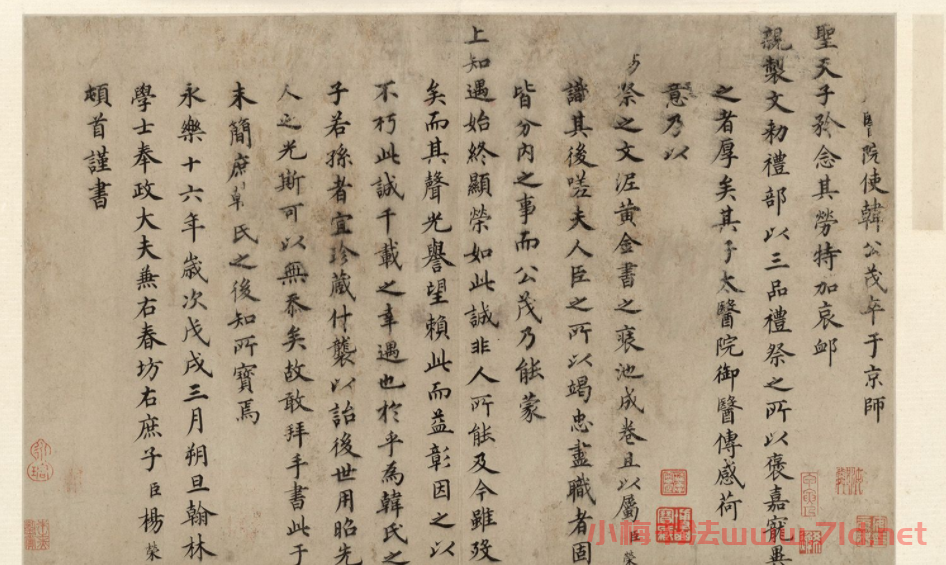 醫院使韓公茂卒于京師
聖天子矜念其勞特加哀卹
親製文勑禮部以三品禮祭之所以褒嘉寵異
之者厚矣其子太醫院御醫傳感荷
意乃以
祭之文泥黃金書之裒池成卷且以屬臣榮
識其後嗟夫人臣之所以竭忠盡職者固
皆分內之事而公茂乃能蒙
上知遇始終顯榮如此誠非人所能及今雖歿
矣而其聲光譽望賴此而益彰因之以
不朽此誠千載之幸遇也於乎為韓氏之
子若孫者宜珍藏什襲以詒後世用昭先
人之光斯可以無忝矣故敢拜手書此于
末簡庶韓氏之後知所寶焉
永樂十六年歲次戊戌三月朔旦翰林
學士奉政大夫兼右春坊右庶子臣楊榮
頓首謹書
小梅書法www.7ld.net